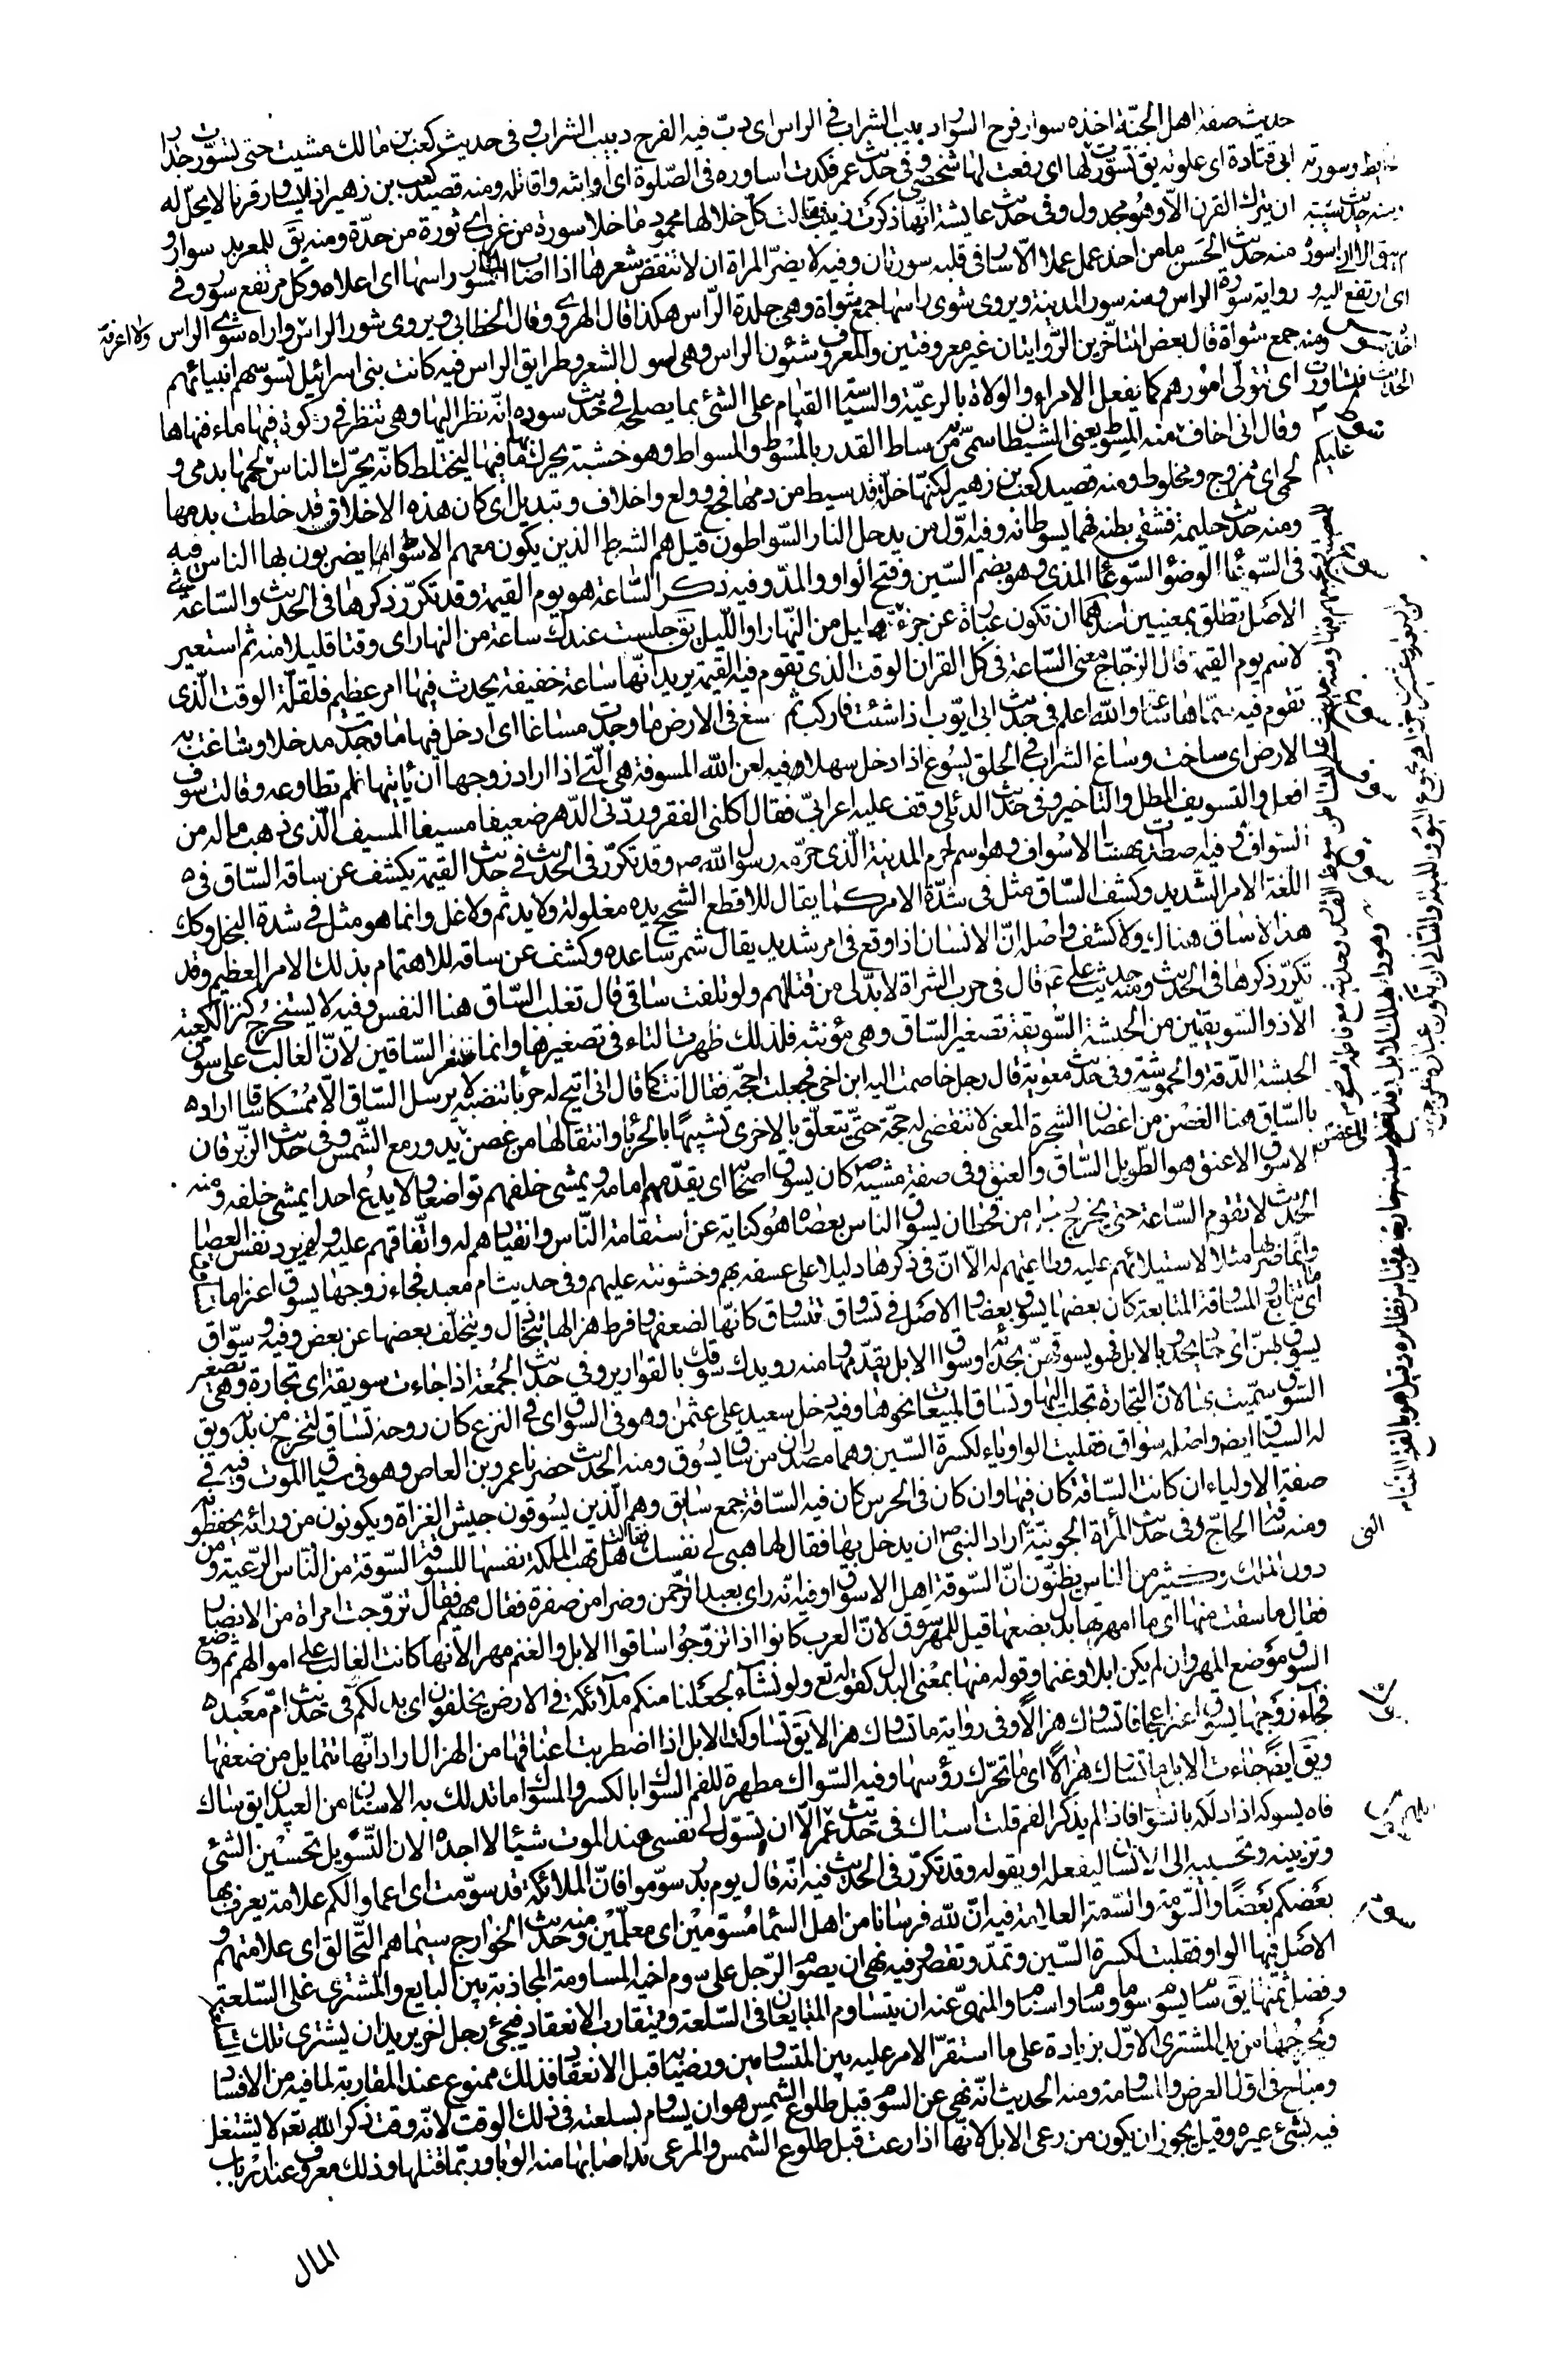 حديث صفة اهل الجنة اخذه سوار فرح السوار دبيب الشراب في الراس اى دب فيه الفرح دبيب الشراب و في حديث كعب بن مالك مشيت حتى تسورت جدار
ابى قتادة اى علوته يق تسورت لها اى رفعت لها شخصى و فى حديث عمر فكدت اساوره فى الصلوة اى اواثبه واقاتله ومنه قصيد كعب بن زهير اذا يساور قرنا لا يحل له
ان يترك القرن الا وهو مجدول وفى حديث عايشة انها ذكرت زينب فقالت كل خلالها محمود ما خلا سورة من غرب اى ثورة من حدة ومنه يق للمعربد سوار و
منه حديث الحسن ما من احد عمل عملا الا سار فى قلبه سورتان وفيه لا يضر المراة ان لا تنقض شعرها اذا اصاب الماء سور راسها اى اعلاه وكل مرتفع سور وفى
رواية سورة الراس ومنه سور المدينة ويروى شوى راسها جمع شواة وهى جلدة الراس هكذا قال الهروى وقال الخطابى ويروى شور الراس واراه شوى الراس ولا اعرفه
جمع شواة قال بعض المتاخرين الروايتان غير معروفتين والمعروف شئون الراس وهى اصول الشعر وطرايق الراس فيه كانت بنى اسرائيل تسوسهم انبيائهم
اى تتولى امورهم كما يفعل الامراء والولاة بالرعية والسياسة القيام على الشئ بما يصلحه فى حديث سوده انه نظر اليها وهى تنظر فى ركوة فيها ماء فنهاها
وقال انى اخاف عليكم منه المسوط يعنى الشيطان سمى من ساط القدر بالمسوط والمسواط وهو خشبة يحرك بها ما فيها ليختلط كانه يحرك الناس بدمى و
لحمى اى ممزوج ومخلوط ومنه قصيد كعب بن زهير لكنها خلة قد سيط من دمها فجع وولع واخلاف وتبديل اى كان هذه الاخلاق قد خلطت بدمها
ومنه حديث حليمة فشقى بطنه فهما يسوطانه وفيه اول من يدخل النار السواطون قيل هم الشرط الذين يكون معهم الاسواط يضربون بها الناس فيه
فى السوعاء الوضوء السوعاء المذى وهو بضم السين وفتح الواو والمد وفيه ذكر الساعة هو يوم القيمة وقد تكرر ذكرها فى الحديث والساعة فى
الاصل يطلق بمعنيين احدهما ان تكون عبارة عن جزء قليل من النهار او الليل يق جلست عندك ساعة من النهار اى وقتا قليلا منه ثم استعير
لاسم يوم القيمة قال الزجاج معنى الساعة فى كل القران الوقت الذى تقوم فيه القيمة يريد انها ساعة خفيفة يحدث فيها امر عظيم فلقلة الوقت الذى
تقوم فيه سماها ساعة والله اعلم فى حديث ابى ايوب اذا شئت فاركب ثم سغ فى الارض ما وجدت مساغا اى ادخل فيها ما وجدت مدخلا وساغت به
الارض اى ساخت وساغ الشراب فى الحلق يسوغ اذا دخل سهلا وفيه لعن الله المسوفة هى التى اذا اراد زوجها ان ياتيها لم تطاوعه وقالت سوف
افعل والتسويف المطل والتاخير و فى حديث الدئلى وقف عليه اعرابى فقال اكلنى الفقر وردنى الدهر ضعيفا مسيفا المسيف الذى ذهب ماله من
السواف و فيه اصطدت نهسا بالاسواف هو اسم لحرم المدينة الذى حرمه رسول الله ص وقد تكرر فى الحديث فى حديث القيمة يكشف عن ساقه الساق فى
اللغة الامر الشديد وكشف الساق مثل فى شدة الامر كما يقال للاقطع الشحيح يده مغلولة ولا يد ثم ولا غل وانما هو مثل فى شدة البخل وكك
هذا لا ساق هناك ولا كشف واصله ان الانسان اذا وقع فى امر شديد يقال شمر ساعده وكشف عن ساقه للاهتمام بذلك الامر العظيم وقد
تكرر ذكرها فى الحديث ومنه حديث على ع قال فى حرب الشراة لا بد لى من قتالهم ولو تلفت ساقى قال ثعلب الساق هنا النفس وفيه لا يستخرج كنز الكعبة
الا ذو السويقتين من الحبشة السويقة تصغير الساق وهى مؤنثه فلذلك ظهرت التاء فى تصغيرها وانما صغر الساقين لان الغالب على سوق
الحبشة الدقة والحموشة وفى حديث معوية قال رجل خاصمت اليه ابن اخى فجعلت احجه فقال انت كما قال انى اتيح له حرباء تنضبة لا يرسل الساق الا ممسكا ساقا اراد
بالساق هنا الغصن من اغصان الشجرة المعنى لا تنقضى له حجة حتى يتعلق بالاخرى تشبيها بالحرباء وانتقالها من غصن يدور مع الشمس وفى حديث الزبرقان
الاسوق الاعنق هو الطويل الساق والعنق وفى صفة مشيه ص كان يسوق اصحابه اى يقدمهم امامه ويمشى خلفهم تواضعا ولا يدع احدا يمشى خلفه ومنه
الحديث لا تقوم الساعة حتى يخرج رجل من قحطان يسوق الناس بعصاه هو كناية عن استقامة الناس وانقيادهم له واتفاقهم عليه ولم يرد نفس العصا
وانما ضربها مثلا لاستيلائهم عليه وطاعتهم له الا ان فى ذكرها دليلا على عسفه بهم وخشونته عليهم وفى حديث ام معبد فجاء زوجها يسوق اعنزا ما تساوق
اى ما تتابع المساوقة المتابعة كان بعضها يسوق بعضا والاصل فى تساوق تتساوق كانها لضعفها وفرط هزالها تتخاذل ويتخلف بعضها عن بعض وفيه وسواق
يسوق بهن اى حاد يحدو بالابل فهو يسوقهن بحدائه وسواق الابل يقدمها ومنه رويدك سوقك بالقوارير وفى حديث الجمعة اذا جاءت سويقة اى تجارة وهى تصغير
السوق سميت بها لان التجارة تجلب اليها وتساق المبيعات نحوها وفيه دخل سعيد على عثمن وهو فى السوق اى فى النزع كان روحه تساق لتخرج من بدنه ويق
له السياق ايضا واصله سواق فقلبت الواو ياء لكسرة السين وهما مصدران من ساق يسوق ومنه الحديث حضرنا عمرو بن العاص وهو فى سياق الموت وفيه فى
صفة الاولياء ان كانت الساقة كان فيها وان كان فى الحرس كان فيه الساقة جمع سايق وهم الذين يسوقون جيش الغزاة ويكونون من ورائه يحفظونه
ومنه ساقة الحاج وفى حديث المراة الجونية التى اراد النبى ص ان يدخل بها فقال لها هبى لى نفسك فقالت هل تهب الملكة نفسها للسوقة السوقة من الناس الرعية ومن
دون الملك وكثير من الناس يظنون ان السوقة اهل الاسواق وفيه انه راى بعبد الرحمن وضرا من صفرة فقال مهيم فقال تزوجت امراة من الانصار
فقال ما سقت منها اى ما امهرتها بدل بضعها قيل للمهر سوق لان العرب كانوا اذا تزوجوا ساقوا الابل والغنم مهرا لانها كانت الغالب على اموالهم ثم وضع
السوق موضع المهر وان لم يكن ابلا وغنما وقوله منها بمعنى البدل كقوله تع ولو نشاء لجعلنا منكم ملآئكة فى الارض يخلفون اى بدلكم فى حديث ام معبد
فجاء زوجها يسوق اعنزا عجافا تساوك هزالا وفى رواية ما تساوك هزالا يق تساوكت الابل اذا اضطربت اعناقها من الهزال اراد انها تتمايل من ضعفها
ويق ايضا جاءت الابل ما تساوك هزالا اى ما تحرك رؤسها وفيه السواك مطهرة للفم السواك بالكسر والمسواك ما تدلك به الاسنان من العيدان يق ساك
فاه يسوكه اذا دلكه بالسواك فاذا لم يذكر الفم قلت استاك فى حديث عمر الا ان تسول لى نفسى عند الموت شيئا لا اجده الان التسويل تحسين الشئ
وتزيينه وتحبيبه الى الانسان ليفعله او يقوله وقد تكرر فى الحديث فيه انه قال يوم بدر سوموا فان الملائكة قد سومت اى اعملوا لكم علامة يعرف بها
بعضكم بعضا والسومة والسمة العلامة فيه ان لله فرسانا من اهل السماء مسومين اى معلمين ومنه حديث الخوارج سيماهم التحالق اى علامتهم و
الاصل فيها الواو فقلبت لكسرة السين وتمد وتقصر فيه نهى ان يسوم الرجل على سوم اخيه المساومة المجاذبة بين البايع والمشترى على السلعة
وفصل ثمنها يق سام يسوم سوما وساوم واستام والمنهى عنه ان يتساوم المتبايعان فى السلعة ويتقارب الانعقاد فيجئ رجل اخر يريد ان يشترى تلك السلعة
ويخرجها من يد المشترى الاول بزيادة على ما استقر الامر عليه بين المتساومين ورضيا به قبل الانعقاد فذلك ممنوع عند المقاربة لما فيه من الافساد
ومباح فى اول العرض والمساومة ومنه الحديث انه نهى عن السوم قبل طلوع الشمس هو ان يساوم بسلعته فى ذلك الوقت لانه وقت ذكر الله تع لا يشتغل
فيه بشئ غيره وقيل يجوز ان يكون من رعى الابل لانها اذا رعت قبل طلوع الشمس والمرعى ند اصابها منه الوباء وربما قتلها وذلك معروف عند ارباب
المال